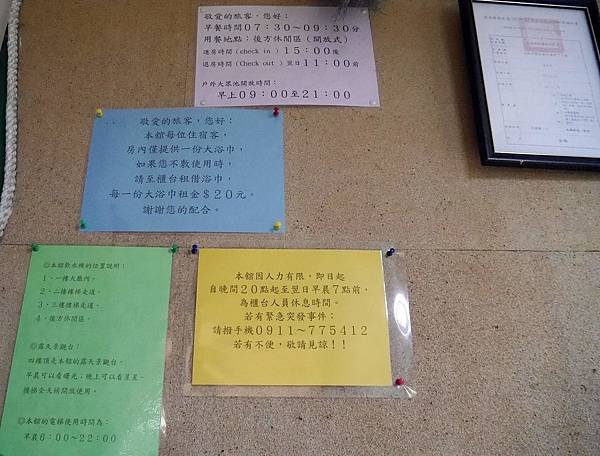 敬愛的旅客，您好：
早餐時間07：30～09：30分
用餐地點：後方休閒區（開放式）
進房時間（check in）15：00後
退房時間（Check out）翌日11：00前
戶外大眾池開放時間：
早上09：00至21：00
敬愛的旅客，您好：
本館每位住宿客，
房內僅提供一份大浴巾，
如果您不敷使用時，
請至櫃台租借浴巾，
每一份大浴巾租金＄20元。
謝謝您的配合。
◎本館飲水機的位置說明：
1、一樓大廳內。
2、二樓樓梯走道。
3、三樓樓梯走道。
4、後方休閒區。
◎露天景觀台：
四樓頂是本館的露天景觀台。
早晨可以看曙光；晚上可以看星星。
樓梯全天候開放使用。
◎本館的電梯使用時間為：
早晨6：00～22：00
本館因人力有限，即日起
自晚間20點起至翌日早晨7點前，
為櫃台人員休息時間。
若有緊急突發事件：
請撥手機0911～775412
若有不便，敬請見諒！！